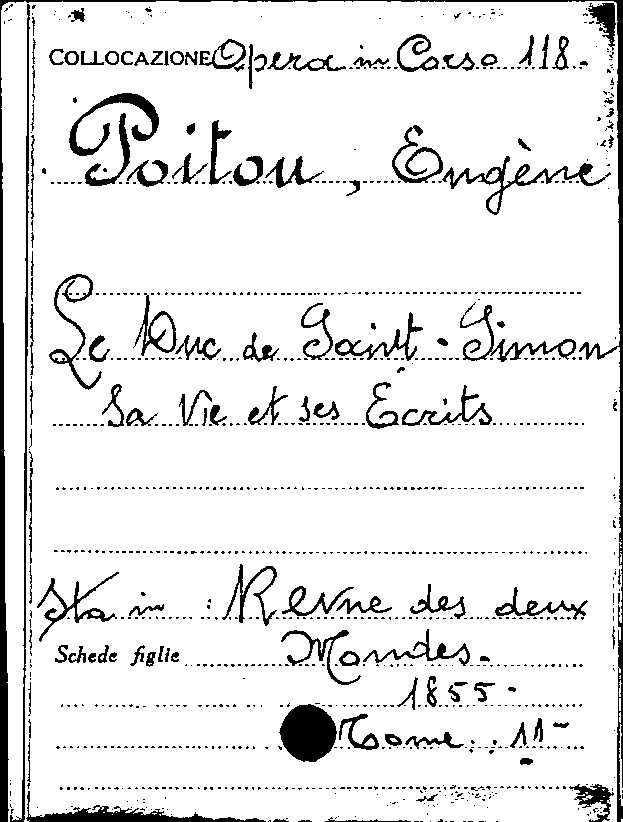 COLLOCAZIONE Opera in Corso 118.
Poitou, Eugène
Le Duc de Saint-Simon
Sa Vie et ses Écrits
Sta in : Revue des deux
Schede figlie Mondes.
1855.
Tome : 11